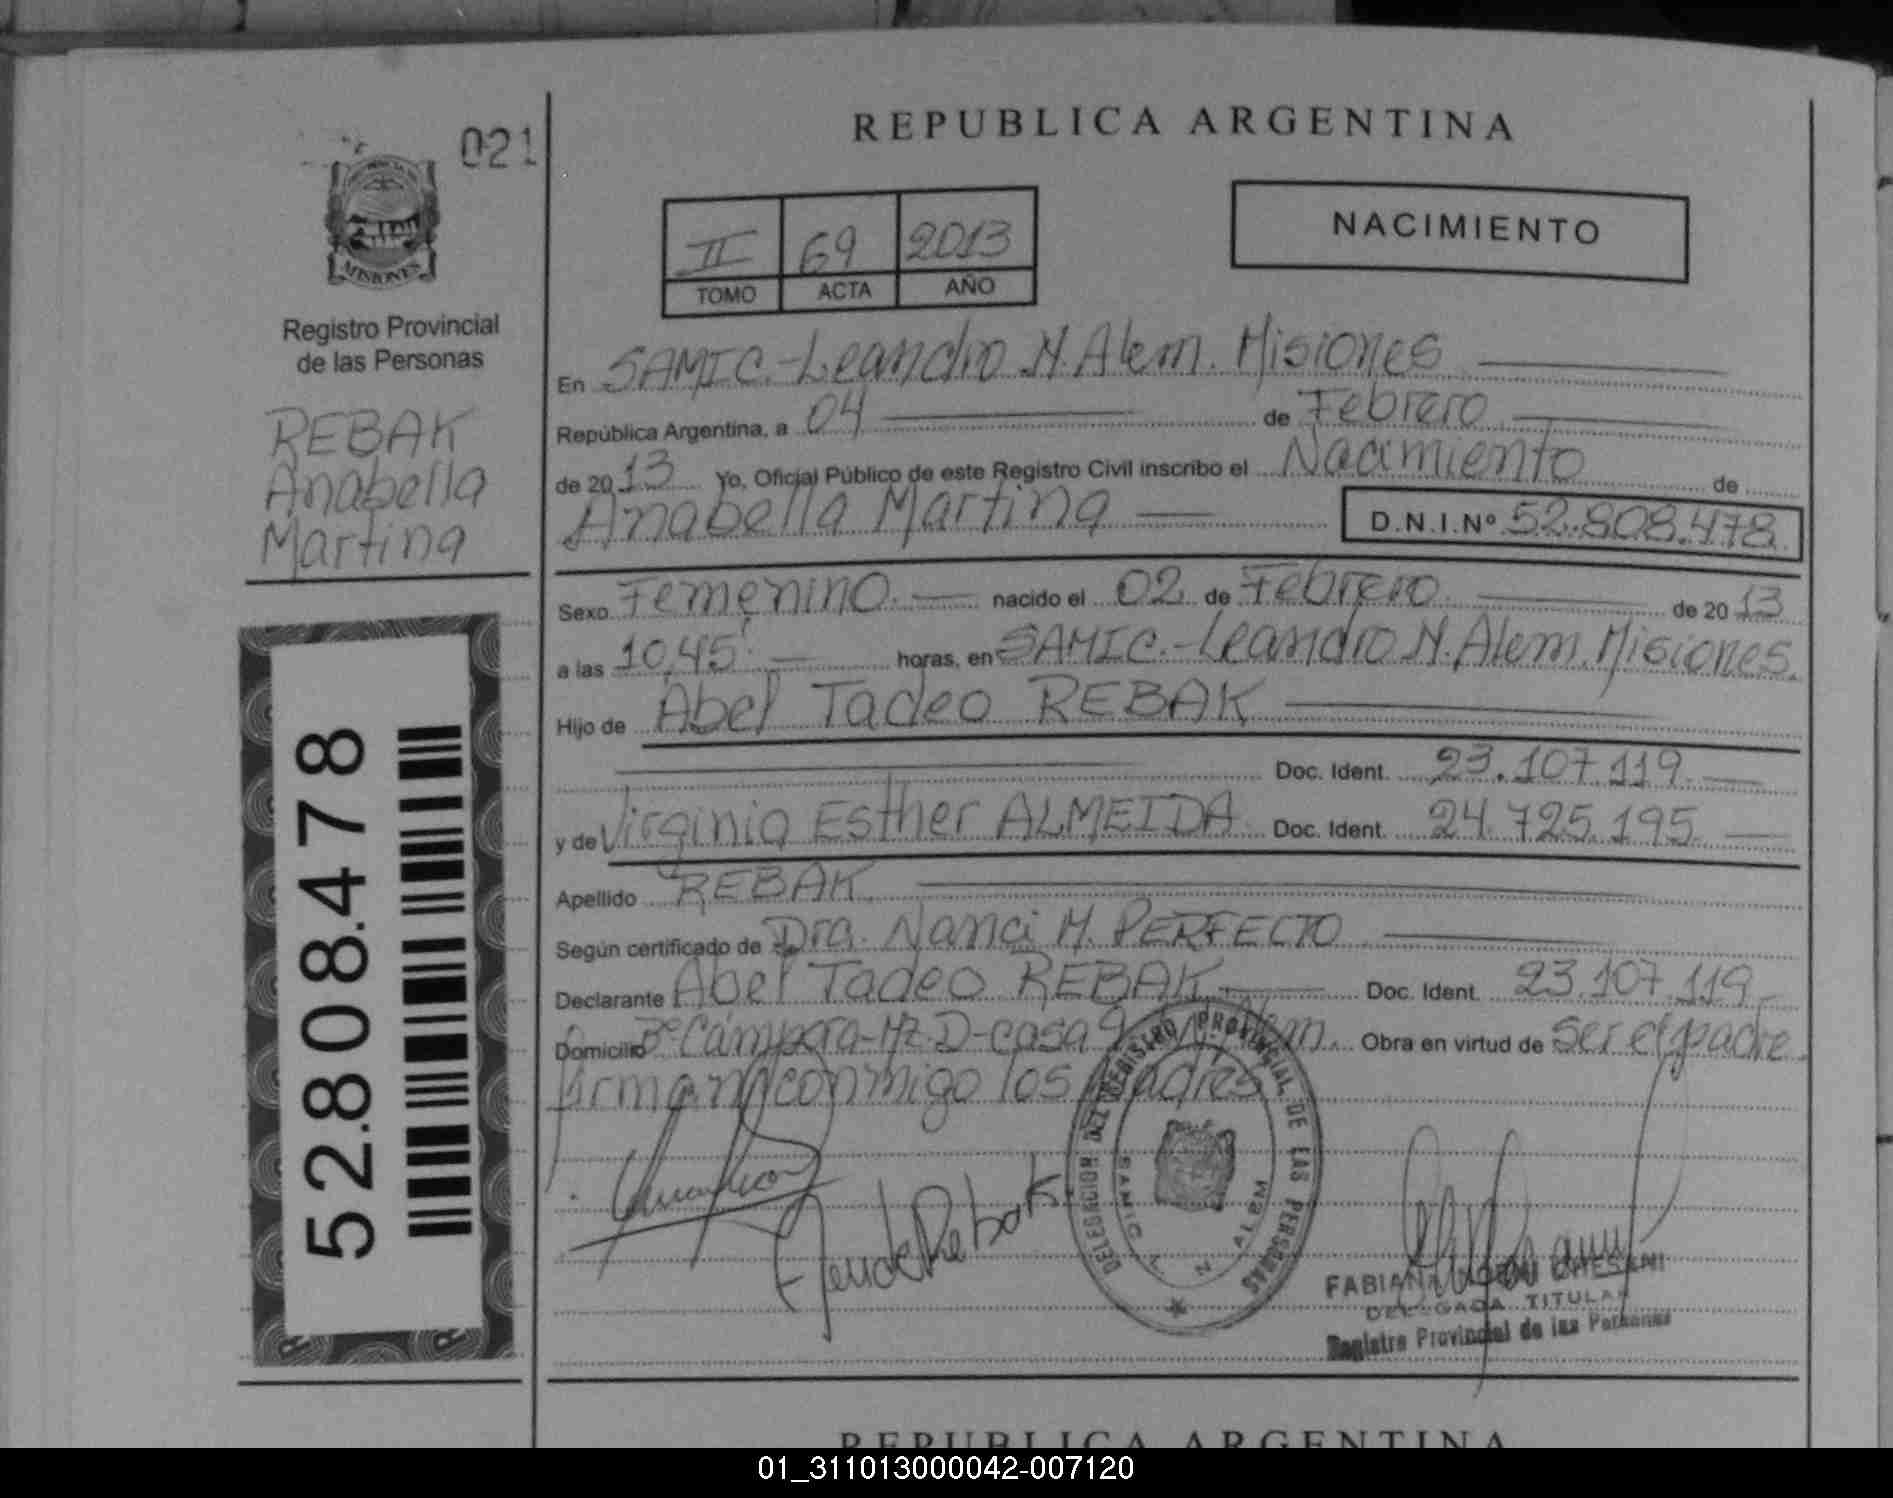 021
REPUBLICA ARGENTINA
MISIONES
Registro Provincial
de las Personas
REBAK
Anabella
Martina
52.808.478
II 69 2013
TOMO ACTA AÑO
NACIMIENTO
En SAMIC.-Leandro N. Alem. Misiones
República Argentina, a 04 de Febrero
de 2013 Yo, Oficial Público de este Registro Civil inscribo el Nacimiento de
Anabella Martina D.N.I.Nº 52.808.478
Sexo Femenino. nacido el 02 de Febrero de 2013
a las 10,45' horas, en SAMIC.-Leandro N. Alem. Misiones.
Hijo de Abel Tadeo REBAK
Doc. Ident. 23.107.119
y de Virginia Esther ALMEIDA Doc. Ident. 24.725.195
Apellido REBAK
Según certificado de Dra. Nanci M. PERFECTO
Declarante Abel Tadeo REBAK Doc. Ident. 23.107.119
Domicilio Bº Cámpora-Mz.D-casa 9 N. Alem. Obra en virtud de ser el padre.
firman conmigo los padres
Rebak
DELEGACION DEL REGISTRO PROVINCIAL DE LAS PERSONAS
SAMIC L. N. ALEM
FABIANA
DELEGADA TITULAR
Registro Provincial de las Personas
REPUBLICA ARGENTINA
01_311013000042-007120